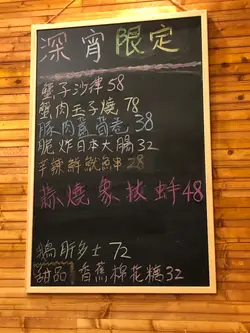 深宵限定
蟹子沙律58
蟹肉玉子燒78
豚肉露筍卷38
脆炸日本大腸32
辛辣鮮魷魚串28
蒜燒象拔蚌48
鵝肝多士72
甜品 香蕉棉花糖32